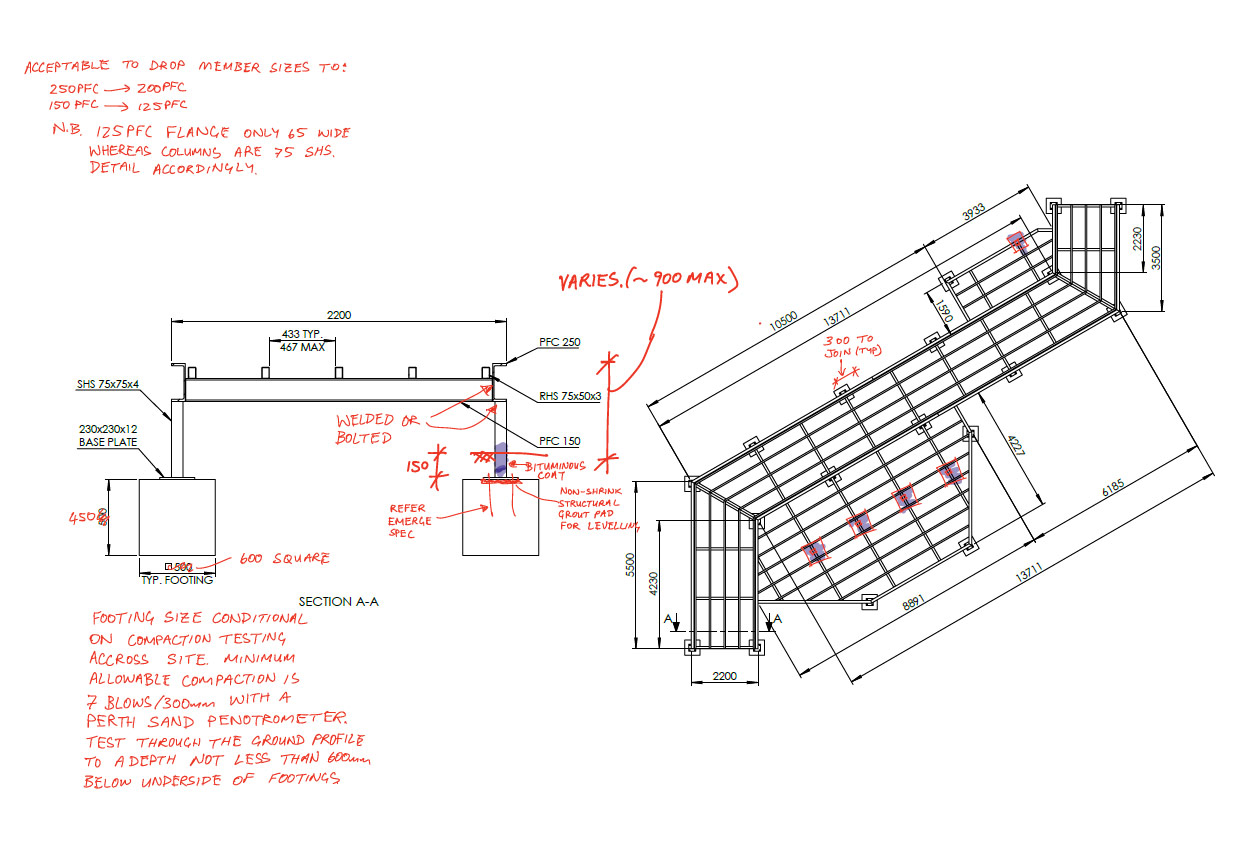 ACCEPTABLE TO DROP MEMBER SIZES TO:
250PFC → 200PFC
150 PFC → 125PFC
N.B. 125PFC FLANGE ONLY 65 WIDE
WHEREAS COLUMNS ARE 75 SHS.
DETAIL ACCORDINGLY.
VARIES. (~ 900 MAX)
2200
433 TYP.
467 MAX
PFC 250
SHS 75x75x4
RHS 75x50x3
230x230x12
BASE PLATE
PFC 150
WELDED OR
BOLTED
150
BITUMINOUS
COAT
NON-SHRINK
STRUCTURAL
GROUT PAD
FOR LEVELLING
REFER
EMERGE
SPEC
450
600 SQUARE
TYP. FOOTING
SECTION A-A
FOOTING SIZE CONDITIONAL
ON COMPACTION TESTING
ACCROSS SITE. MINIMUM
ALLOWABLE COMPACTION IS
7 BLOWS/300mm WITH A
PERTH SAND PENOTROMETER.
TEST THROUGH THE GROUND PROFILE
TO A DEPTH NOT LESS THAN 600mm
BELOW UNDERSIDE OF FOOTINGS
3933
2230
3500
10500
13711
1590
300 TO
JOIN (TYP)
4227
6185
5500
4230
8891
13711
A
A
2200